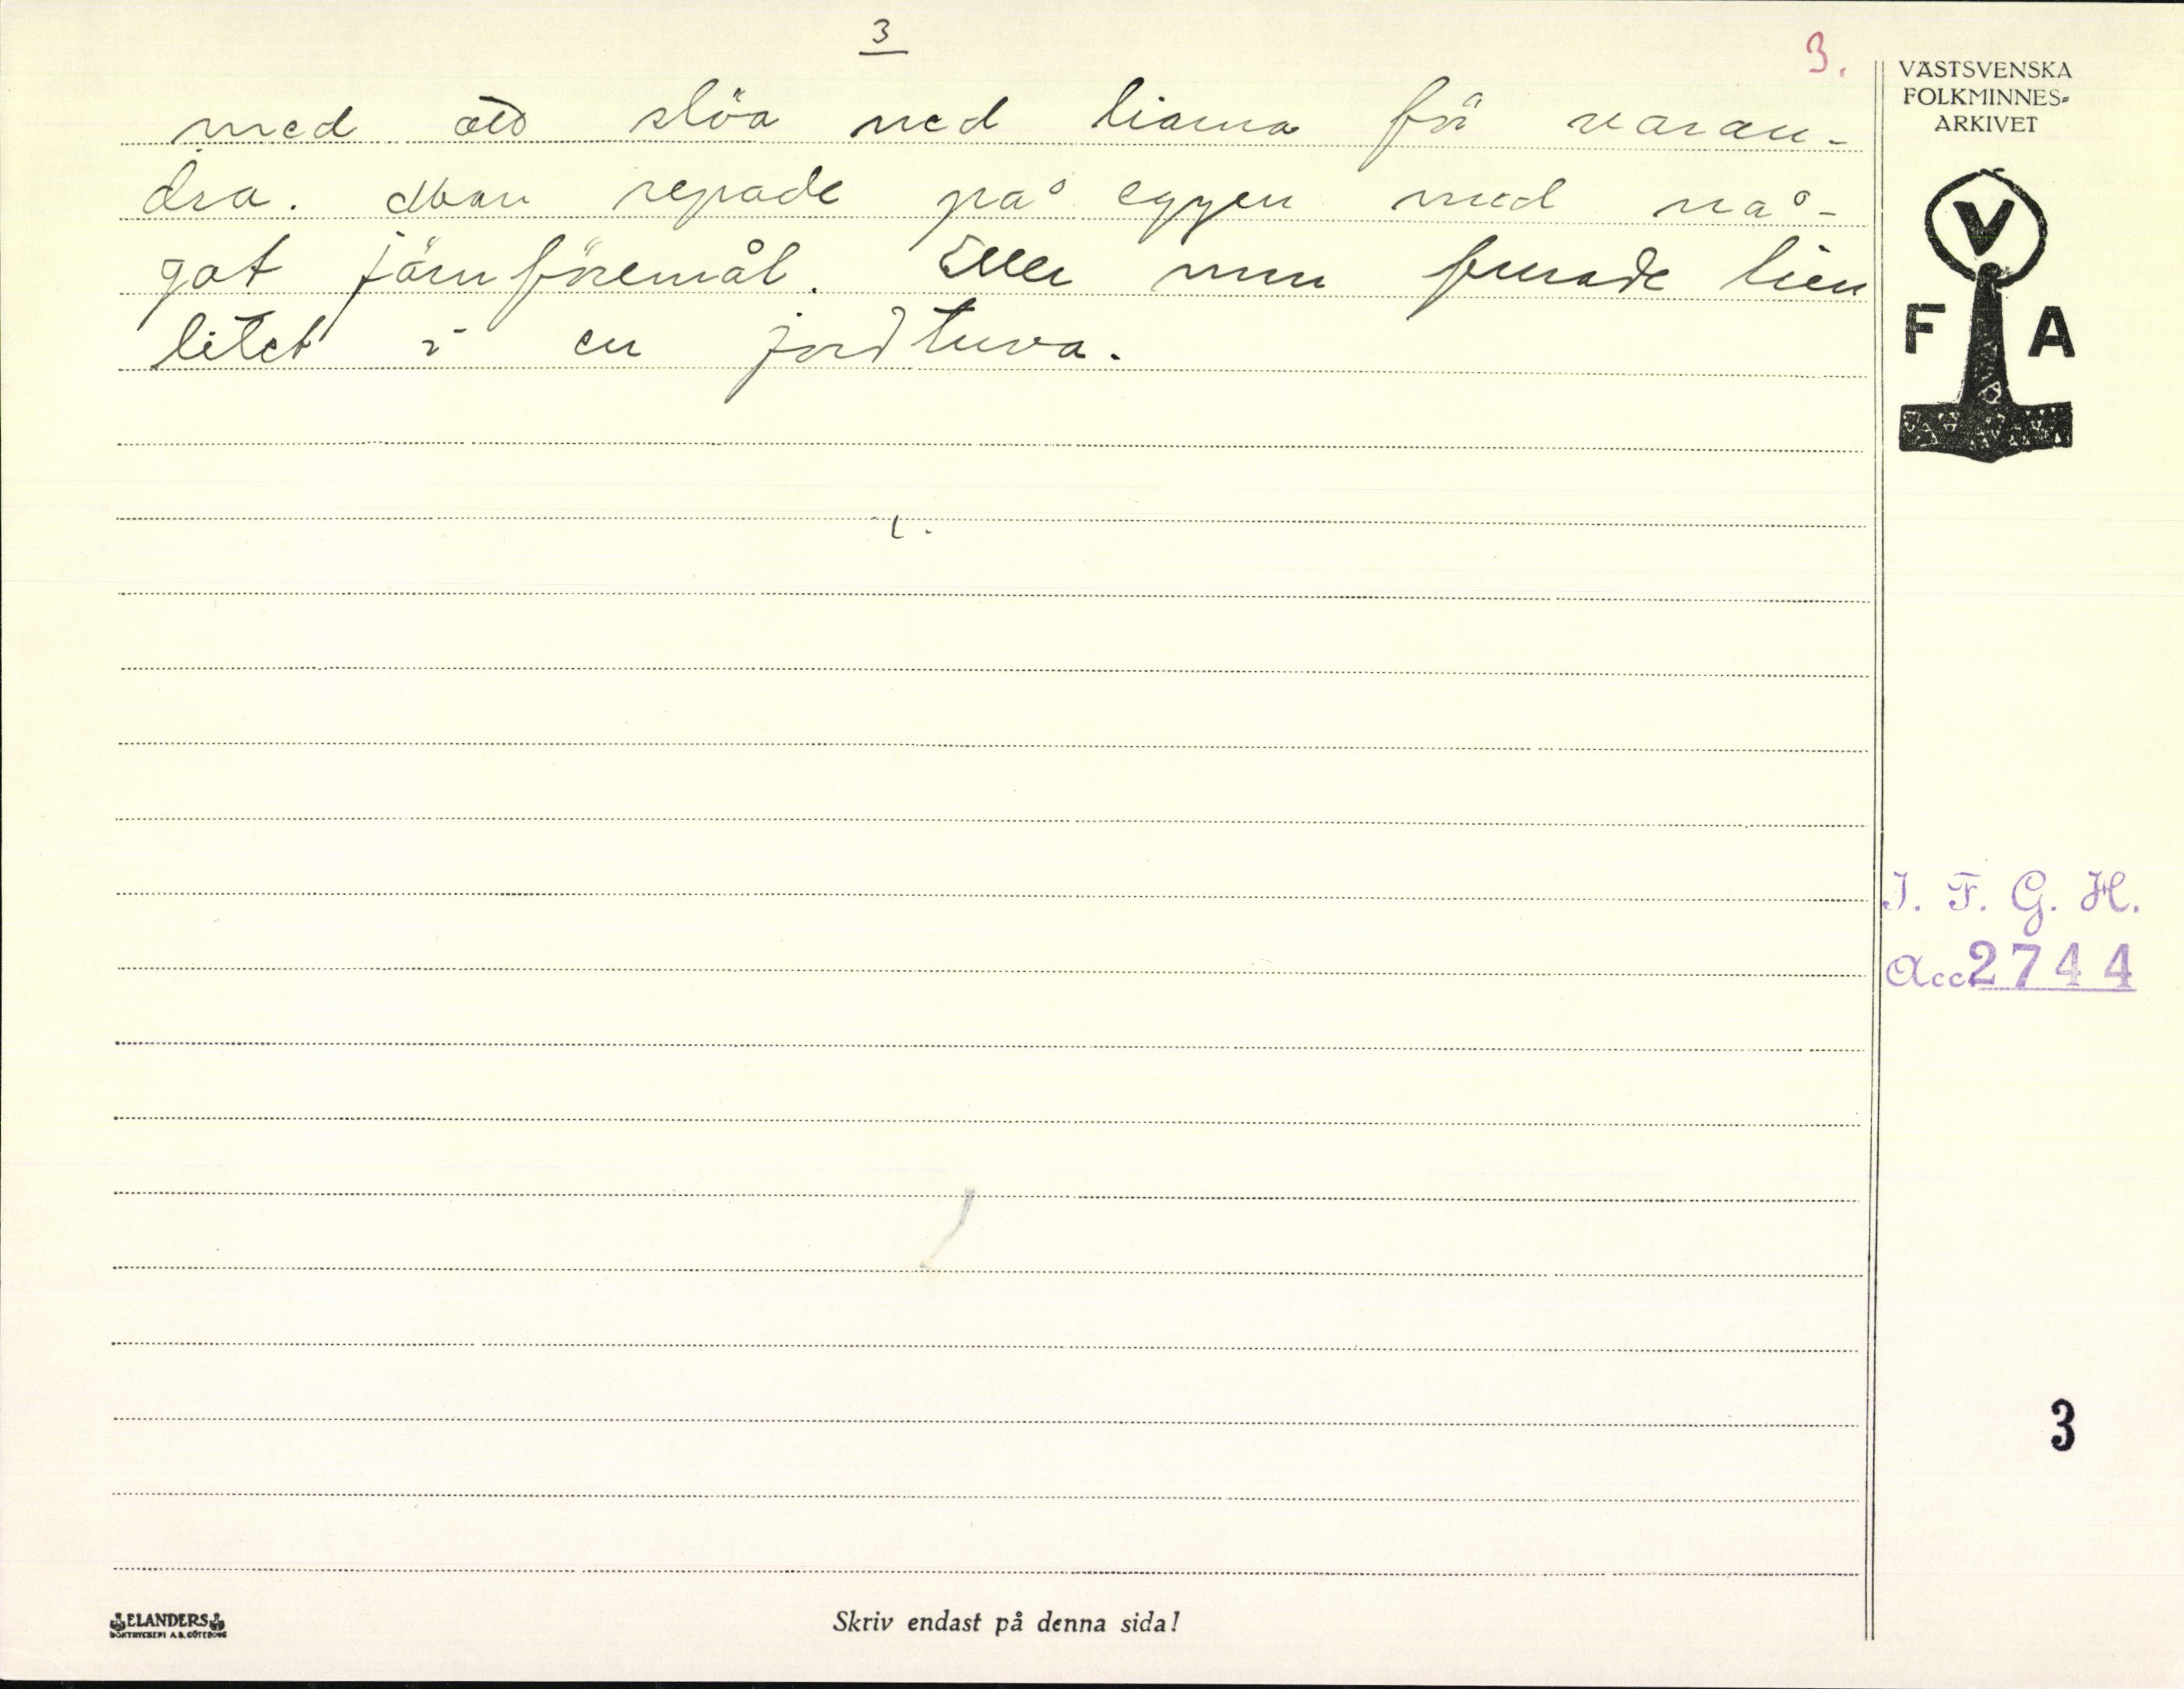 3
3.
med att slöa ned liarna för varan-
dra. Man repade på eggen med nå-
got järnföremål. Eller man lien
litet i en jordtuva.
VÄSTSVENSKA
FOLKMINNES-
ARKIVET
V
F A
I. F. G. H.
Acc. 2744
3
ELANDERS
BOKTRYCKERI A.B. GÖTEBORG
Skriv endast på denna sida!